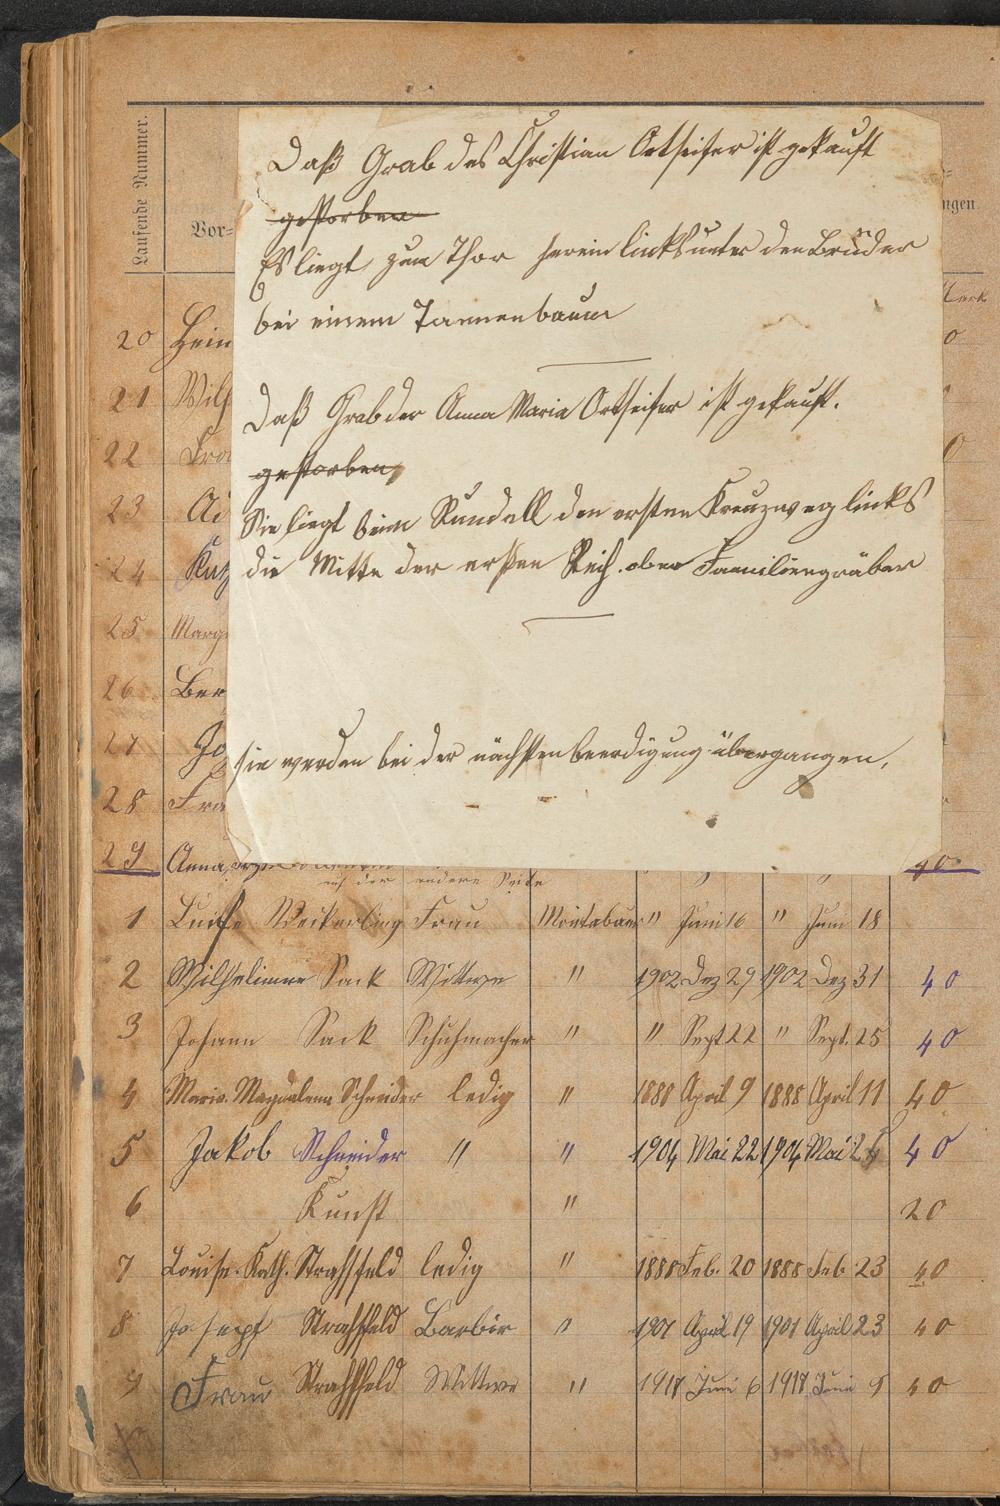 Daß Grab des Christian Ortseifer ist gekauft
gestorben
Es liegt zum Thor herein links unter den Brüder
bei einem Tannenbaum
Daß Grab der Anna Maria Ortseifer ist gekauft.
gestorben
Sie liegt beim Rundell den ersten Kreuzweg links
die Mitte der ersten Reih. ober Familiengräber
sie werden bei der nächsten beerdigung übergangen.
Laufende Nummer.
Vor=
ngen.
20 Hein
21 Wilh
22 Fra
23 Ad
24
25 Marg
26 Ber
27 Jo
28 Fra
29 Anna 40
auf der andere Seite
1 Luise Weikerling Frau Montabaur " Juni 16 " Juni 18
2 Wilhelmine Sack Wittwe " 1902 Dez 29 1902 Dez 31 40
3 Johann Sack Schuhmacher " " Sept 22 " Sept. 25 40
4 Maria Magdalena Schneider ledig " 1888 April 9 1888 April 11 40
5 Jakob Schneider " " 1904 Mai 22 1904 Mai 40
6 Kunst " 20
7 Louise. Kath. Strahlfeld ledig " 1888 Feb. 20 1888 Feb 23 40
8 Josepf Strahlfeld Barbir " 1901 April 19 1901 April 23 40
9 Frau Strahlfeld Wittwe " 1917 Juni 6 1917 Juni 9 40